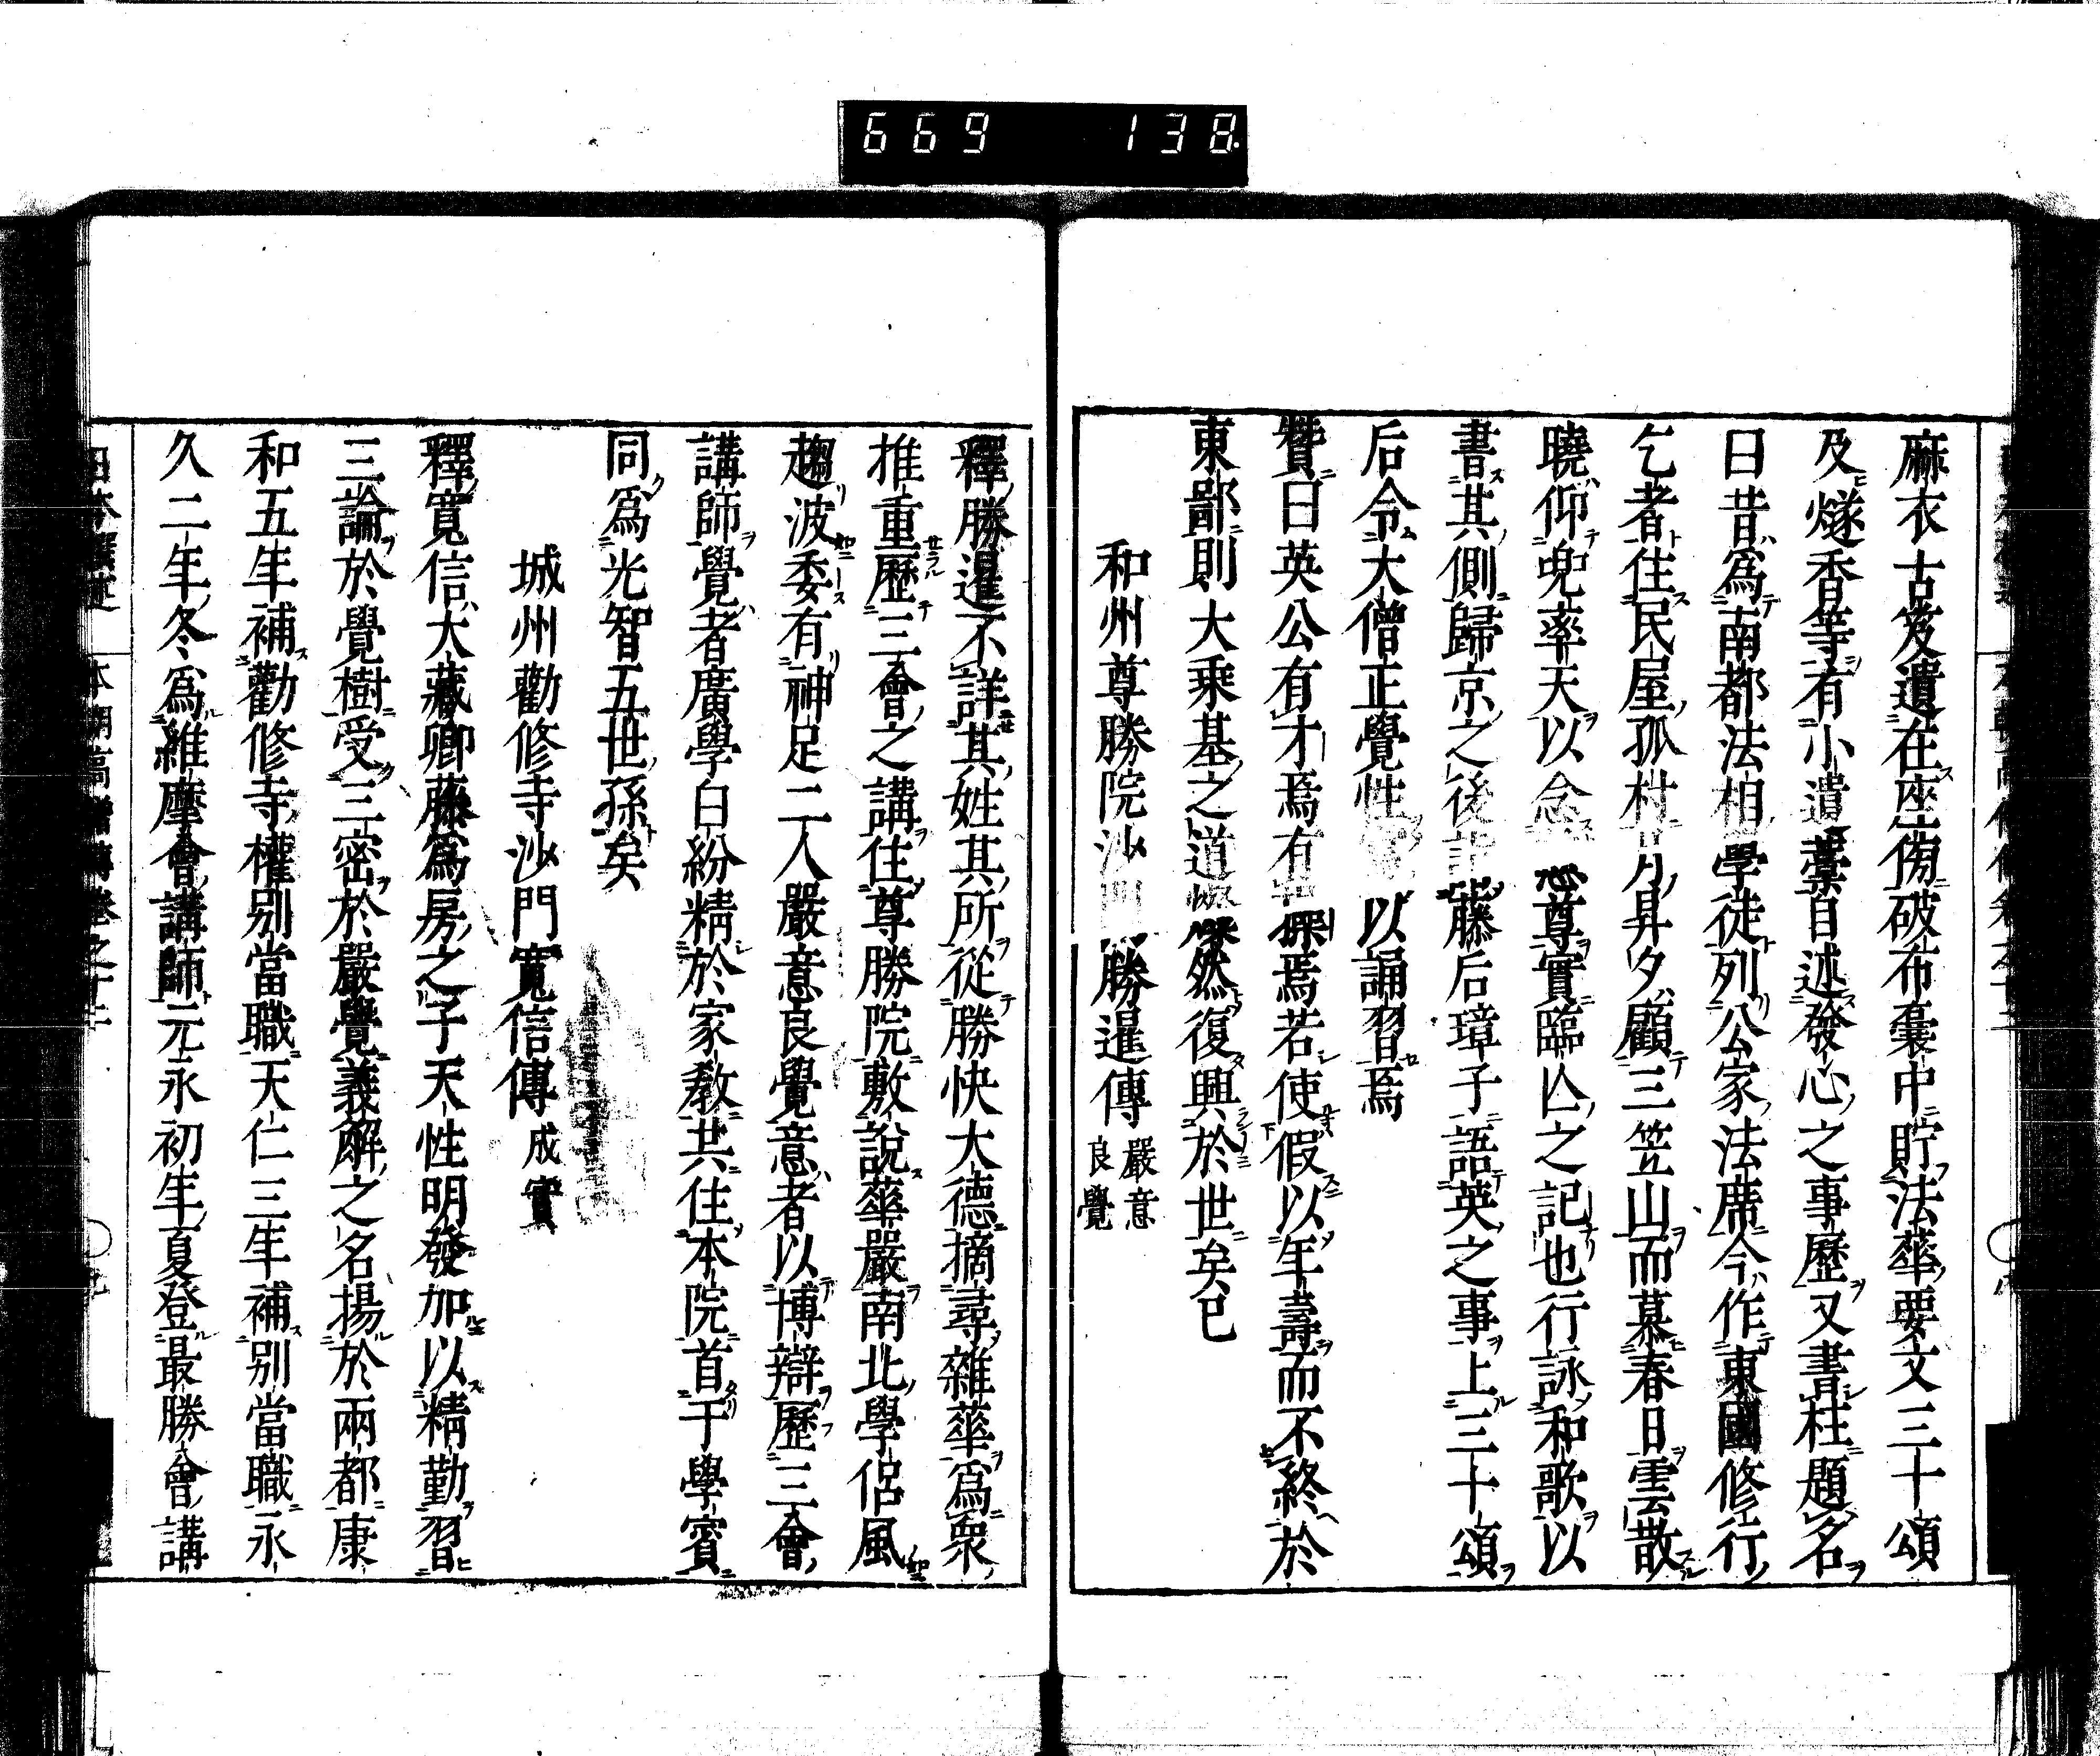 669 138
麻衣古笈遺在座傍破布囊中貯法華要文三十頌
及燧香等有小遺藁自述發心之事歷又書柱題名
曰昔爲南都法相學徒列公家法席今作東國修行
乞者住民屋孤村月昇夕顧三笠山而慕春日雲散
曉仰兜率天以念慈尊實臨亾之記也行詠和歌以
書其側歸京之後記藤后璋子語英之事上三十頌
后令大僧正覺性 以誦習焉
贊曰英公有才焉有 焉若使假以年壽而不終於
東鄙則大乘基之道 然復興於世矣已
和州尊勝院沙門勝暹傳 嚴意 良覺
釋勝暹不詳其姓其所從勝快大德摘尋雜華爲衆
推重歷三會之講住尊勝院敷說華嚴南北學侶風
趨波委有神足二人嚴意良覺意者以博辯歷三會
講師覺者廣學白紛精於家教共住本院首于學賓
同爲光智五世孫矣
城州勸修寺沙門寬信傳 成實
釋寬信大藏卿藤爲房之子天性明發加以精勤習
三論於覺樹受三密於嚴覺義解之名揚於兩都康
和五年補勸修寺權別當職天仁三年補別當職永
久二年冬爲維摩會講師元永初年夏登最勝會講
日本撰述 本朝高僧傳卷之十二